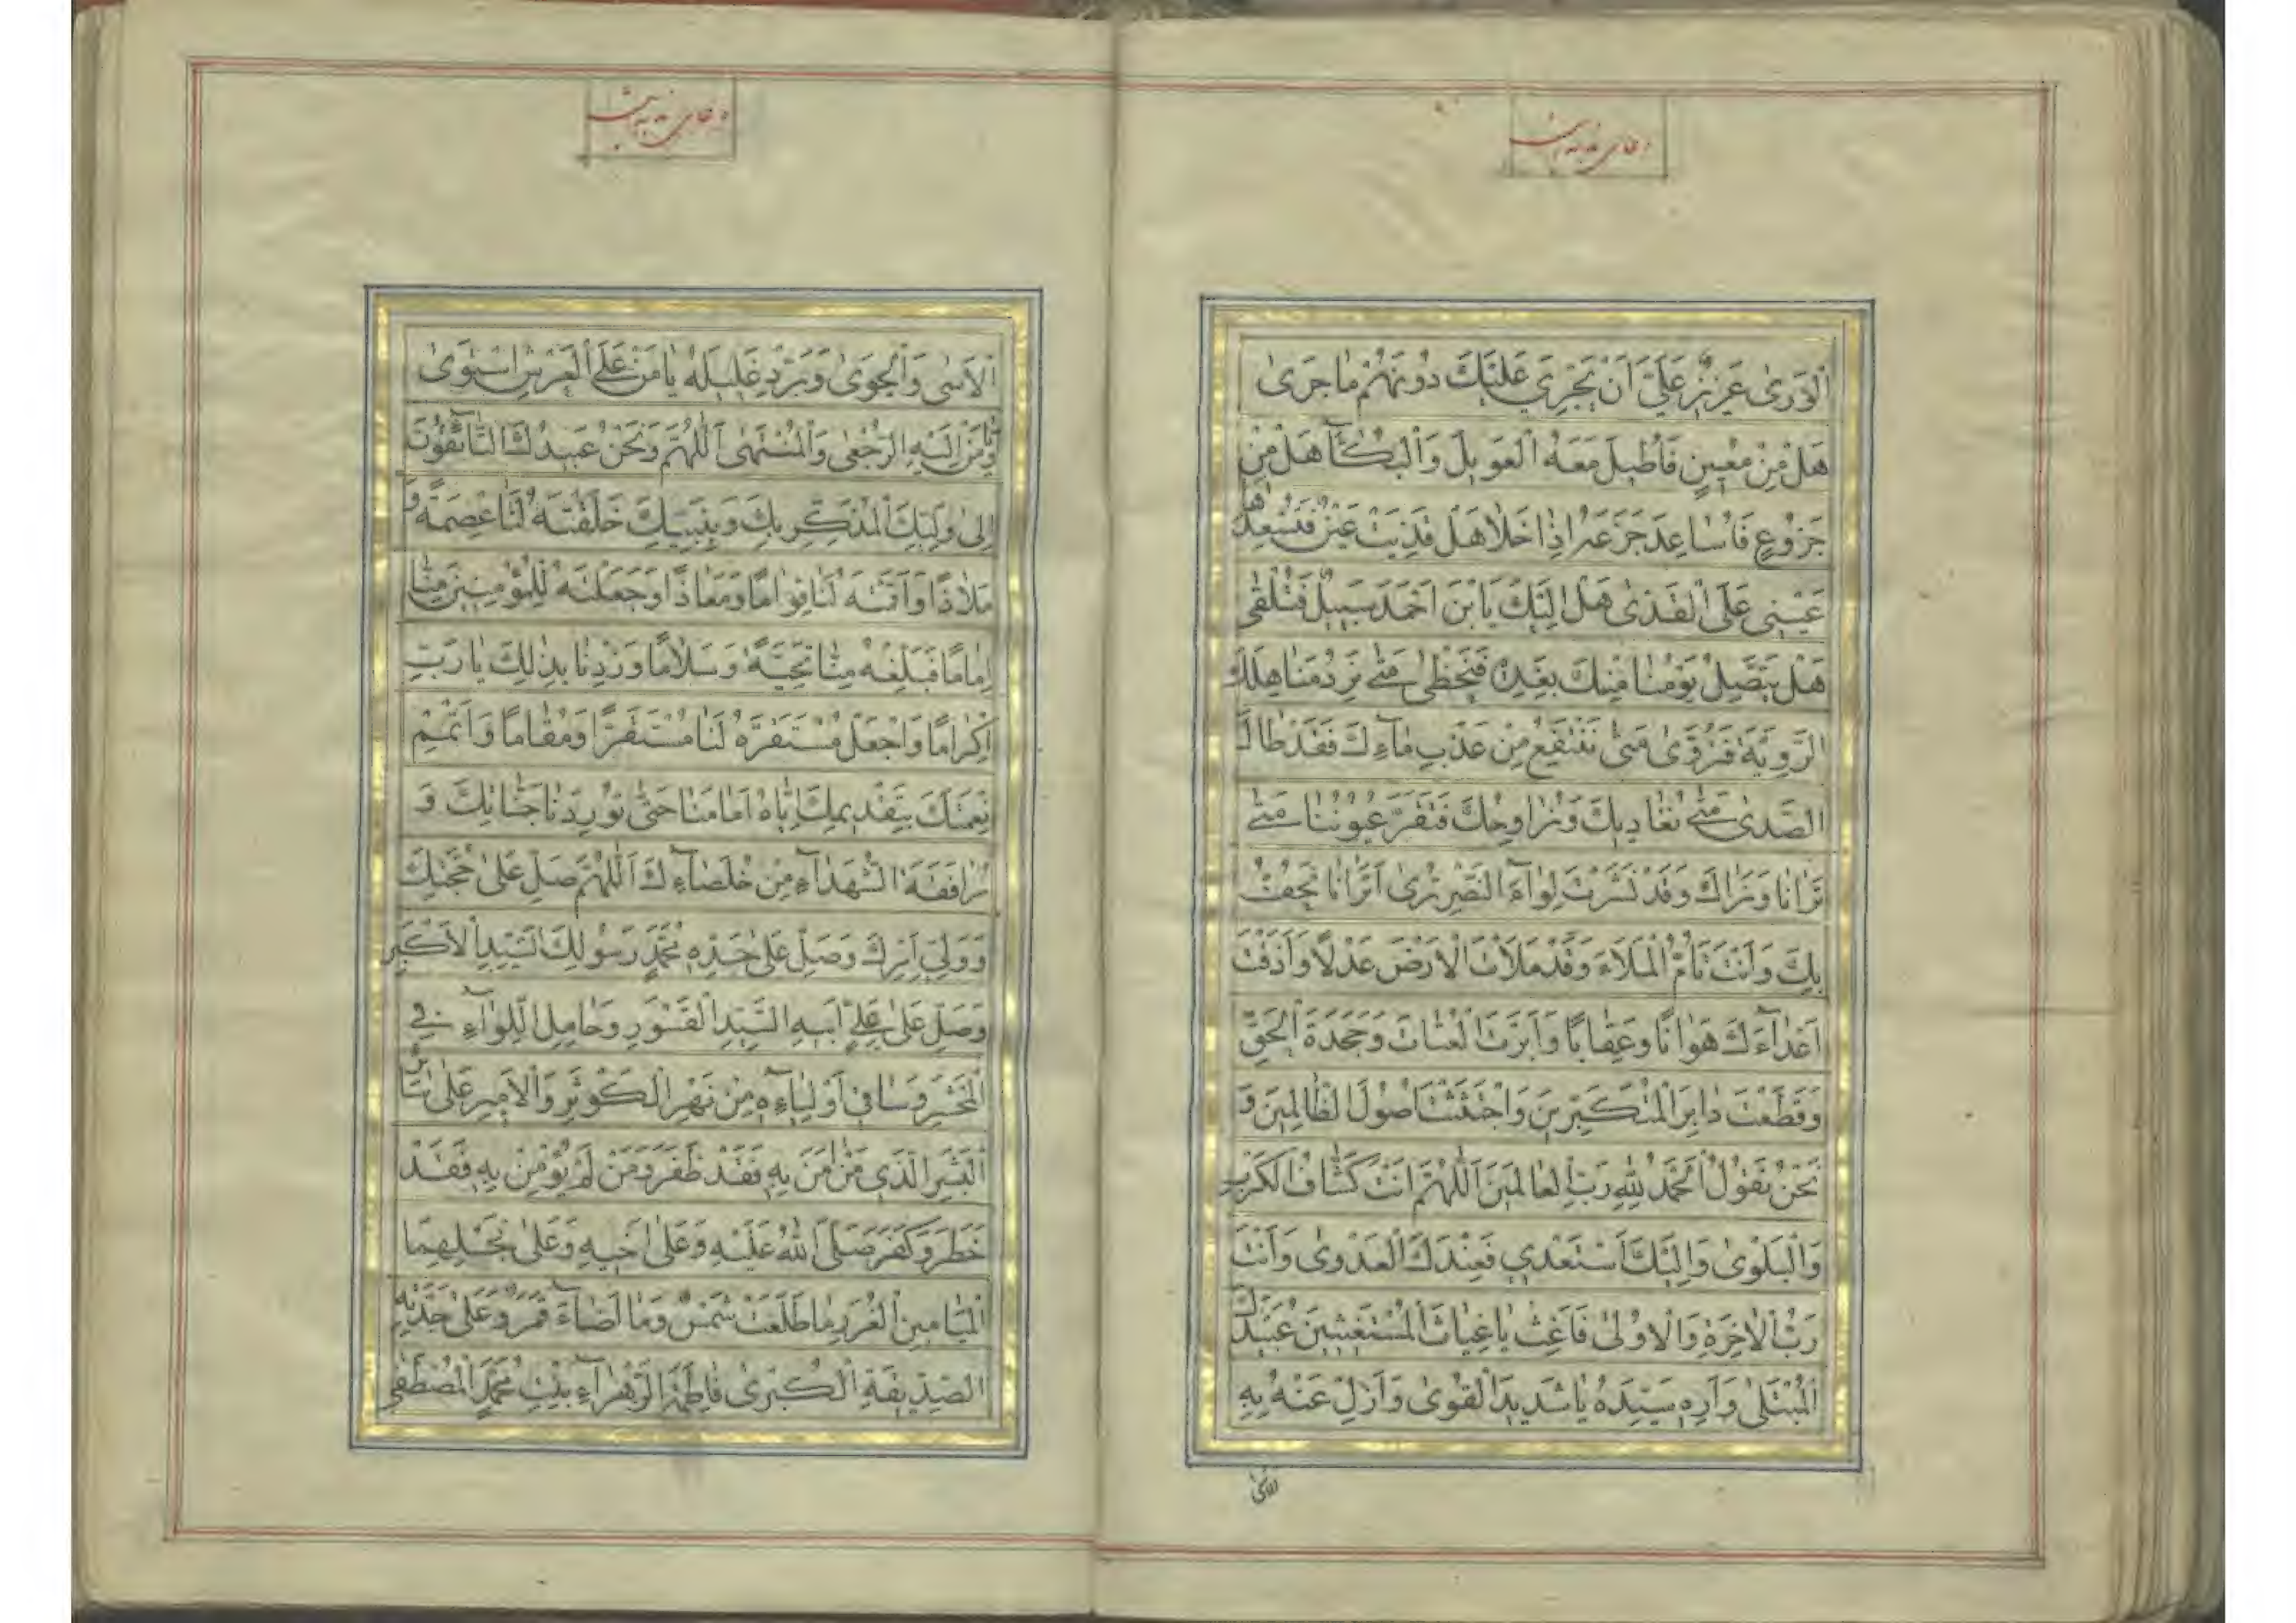 دعای ندبه این است
الْوَرىٰ عَزيزٌ عَلَيَّ اَنْ يَجْرِيَ عَلَيْكَ دُونَهُمْ مٰا جَرىٰ
هَلْ مِنْ مُعينٍ فَاُطيلَ مَعَهُ الْعَويلَ وَالْبُكٰآءَ هَلْ مِنْ
جَزُوعٍ فَاُسٰاعِدَ جَزَعَهُ اِذٰا خَلٰا هَلْ قَذِيَتْ عَيْنٌ فَتُسْعِدُهٰا
عَيْنى عَلَى الْقَذىٰ هَلْ اِلَيْكَ يَابْنَ اَحْمَدَ سَبيلٌ فَتُلْقىٰ
هَلْ يَتَّصِلُ يَوْمُنٰا مِنْكَ بِغَدِهِ فَنَحْظىٰ مَتىٰ نَرِدُ مَنٰاهِلَكَ
الرَّوِيَّةَ فَنَرْوىٰ مَتىٰ نَنْتَفِعُ مِنْ عَذْبِ مٰآءِكَ فَقَدْ طٰالَ
الصَّدىٰ مَتىٰ نُغٰاديكَ وَنُرٰاوِحُكَ فَتَقَرَّ عُيُونُنٰا مَتىٰ
تَرٰانٰا وَنَرٰاكَ وَقَدْ نَشَرْتَ لِوٰآءَ النَّصْرِ تُرىٰ اَتَرٰانٰا نَحُفُّ
بِكَ وَاَنْتَ تَاُمُّ الْمَلَاءَ وَقَدْ مَلَأْتَ الْاَرْضَ عَدْلًا وَاَذَقْتَ
اَعْدٰآءَكَ هَوٰانًا وَعِقٰابًا وَاَبَرْتَ الْعُتٰاةَ وَجَحَدَةَ الْحَقِّ
وَقَطَعْتَ دٰابِرَ الْمُتَكَبِّرينَ وَاجْتَثَثْتَ اُصُولَ الظّٰالِمينَ وَ
نَحْنُ نَقُولُ اَلْحَمْدُ لِلّٰهِ رَبِّ الْعٰالَمينَ اَللّٰهُمَّ اَنْتَ كَشّٰافُ الْكَرْبِ
وَالْبَلْوىٰ وَاِلَيْكَ اَسْتَعْدي فَعِنْدَكَ الْعَدْوىٰ وَاَنْتَ
رَبُّ الْاٰخِرَةِ وَالْاُولىٰ فَاَغِثْ يٰا غِيٰاثَ الْمُسْتَغيثينَ عُبَيْدَكَ
الْمُبْتَلىٰ وَاَرِهِ سَيِّدَهُ يٰا شَديدَ الْقُوىٰ وَاَزِلْ عَنْهُ بِهِ
الاسی
دعای ندبه این است
الْاَسىٰ وَالْجَوىٰ وَبَرِّدْ غَليلَهُ يٰا مَنْ عَلَى الْعَرْشِ اسْتَوىٰ
وَمَنْ اِلَيْهِ الرُّجْعىٰ وَالْمُنْتَهىٰ اَللّٰهُمَّ وَنَحْنُ عَبيدُكَ التّٰآئِقُونَ
اِلىٰ وَلِيِّكَ الْمُذَكِّرِ بِكَ وَبِنَبِيِّكَ خَلَقْتَهُ لَنٰا عِصْمَةً وَ
مَلٰاذًا وَاَقَمْتَهُ لَنٰا قِوٰامًا وَمَعٰاذًا وَجَعَلْتَهُ لِلْمُؤْمِنينَ مِنّٰا
اِمٰامًا فَبَلِّغْهُ مِنّٰا تَحِيَّةً وَسَلٰامًا وَزِدْنٰا بِذٰلِكَ يٰا رَبِّ
اِكْرٰامًا وَاجْعَلْ مُسْتَقَرَّهُ لَنٰا مُسْتَقَرًّا وَمُقٰامًا وَاَتْمِمْ
نِعْمَتَكَ بِتَقْديمِكَ اِيّٰاهُ اَمٰامَنٰا حَتّىٰ تُورِدَنٰا جَنّٰاتِكَ وَ
مُرٰافَقَةَ الشُّهَدٰآءِ مِنْ خُلَصٰآءِكَ اَللّٰهُمَّ صَلِّ عَلىٰ حُجَّتِكَ
وَوَلِيِّ اَمْرِكَ وَصَلِّ عَلىٰ جَدِّهِ مُحَمَّدٍ رَسُولِكَ السَّيِّدِ الْاَكْبَرِ
وَصَلِّ عَلىٰ عَلِيٍّ اَبيهِ السَّيِّدِ الْقَسْوَرِ وَحٰامِلِ اللِّوٰآءِ فِي
الْمَحْشَرِ وَسٰاقي اَوْلِيٰآءِهِ مِنْ نَهْرِ الْكَوْثَرِ وَالْاَميرِ عَلىٰ سٰائِرِ
الْبَشَرِ الَّذي مَنْ اٰمَنَ بِهِ فَقَدْ ظَفَرَ وَمَنْ لَمْ يُؤْمِنْ بِهِ فَقَدْ
خَطَرَ وَكَفَرَ صَلَّى اللّٰهُ عَلَيْهِ وَعَلىٰ اَخيهِ وَعَلىٰ نَجْلِهِمَا
الْمَيٰامينِ الْغُرَرِ مٰا طَلَعَتْ شَمْسٌ وَمٰا اَضٰآءَ قَمَرٌ وَعَلىٰ جَدَّتِهِ
الصِّدّيقَةِ الْكُبْرىٰ فٰاطِمَةَ الزَّهْرٰآءِ بِنْتِ مُحَمَّدٍ الْمُصْطَفىٰ